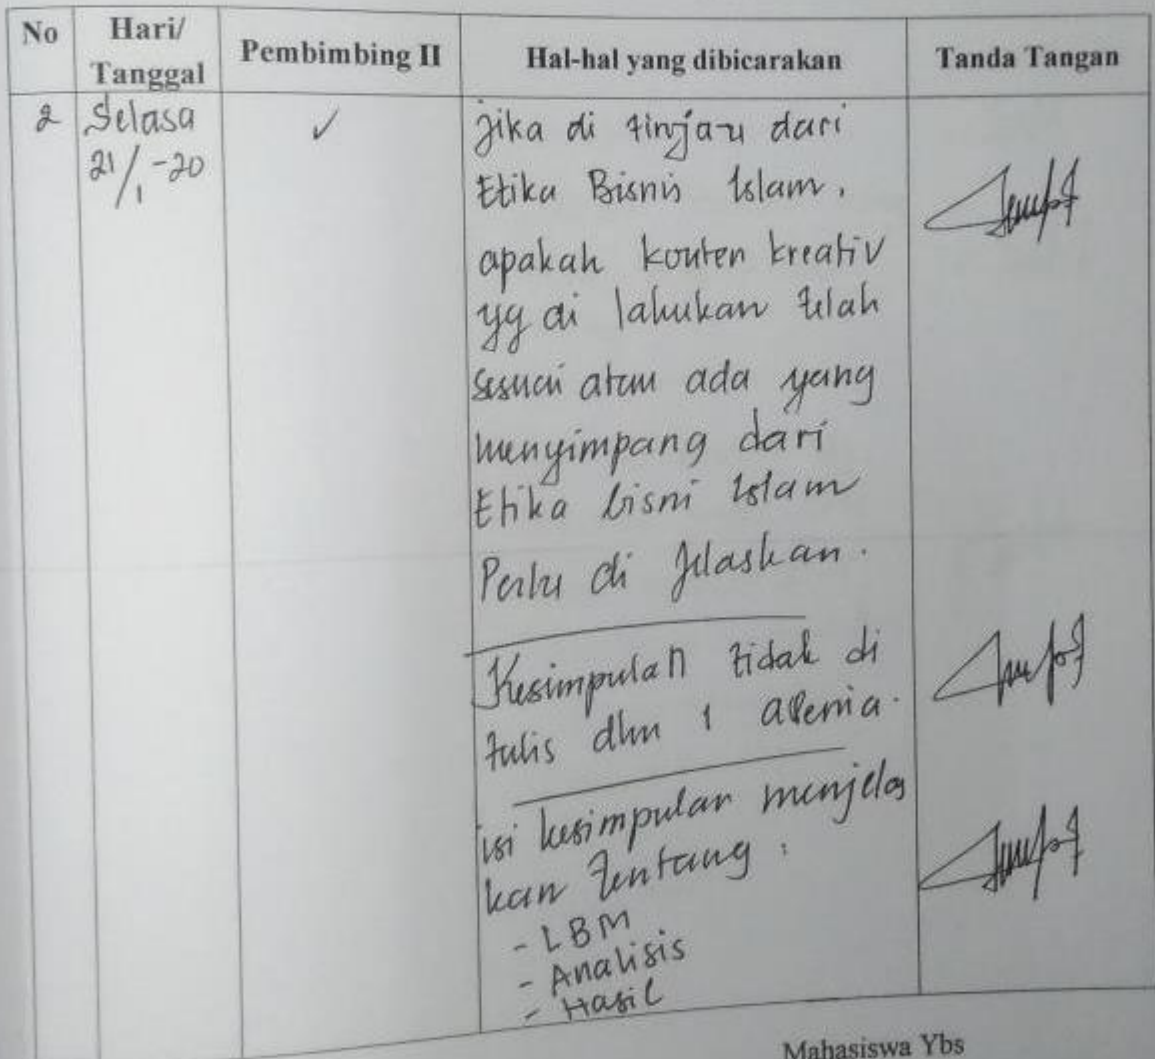 No Hari/ Tanggal Pembimbing II Hal-hal yang dibicarakan Tanda Tangan
2 Selasa ✓ Jika di tinjau dari
21/1-20 Etika Bisnis Islam,
apakah konten kreativ
yg di lakukan telah
sesuai atau ada yang
menyimpang dari
Etika bisni Islam
Perlu di Jelaskan.
Kesimpulan tidak di
tulis dlm 1 alenia.
isi kesimpulan menjelas
kan tentang :
- LBM
- Analisis
- Hasil
Mahasiswa Ybs